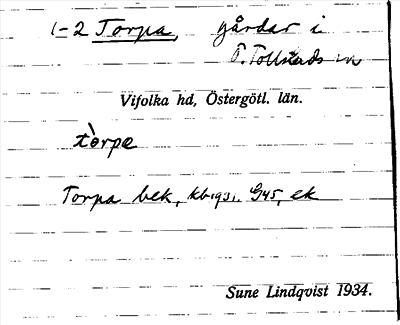 1–2 Torpa, gårdar i
Ö. Tollstads sn
Vifolka hd, Östergötl. län.
tòrpa
Torpa bek, kb 1931. G45, ek
Sune Lindqvist 1934.